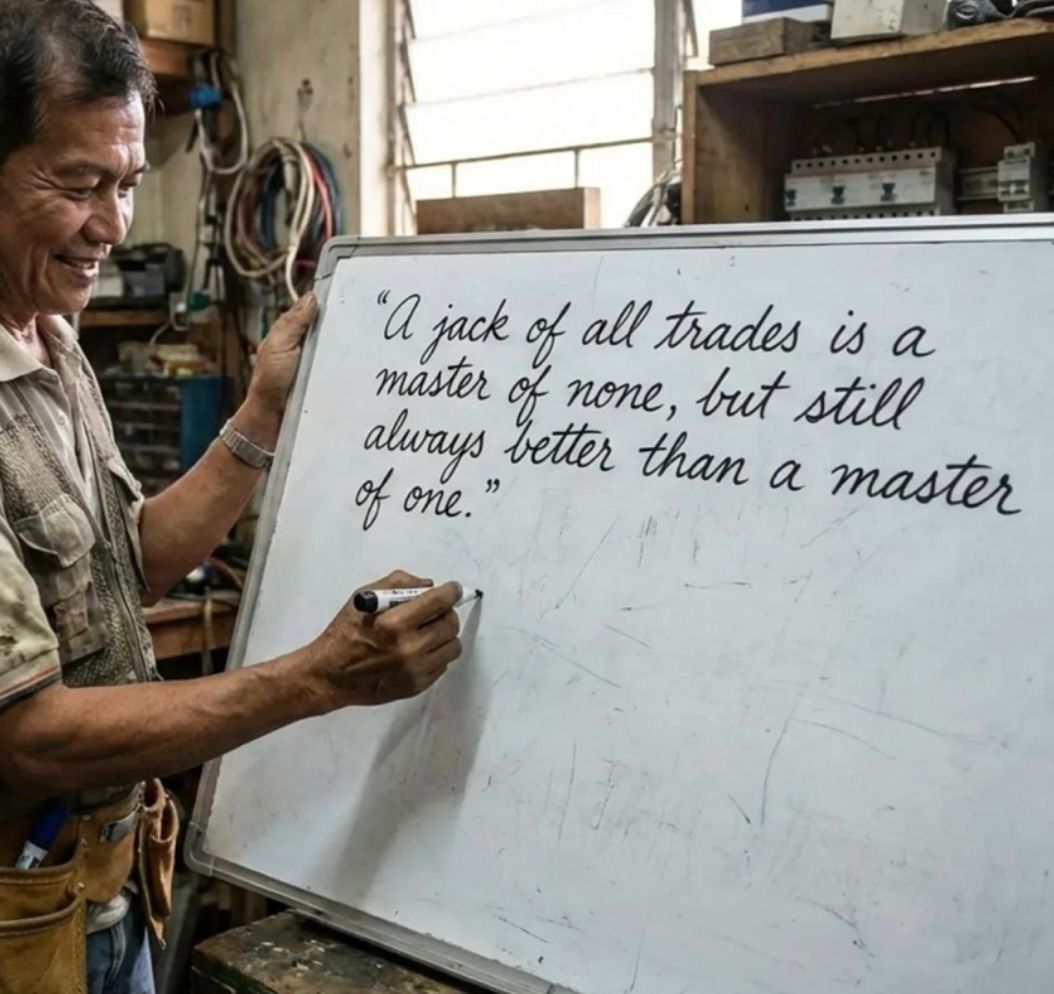 “A jack of all trades is a
master of none, but still
always better than a master
of one.”